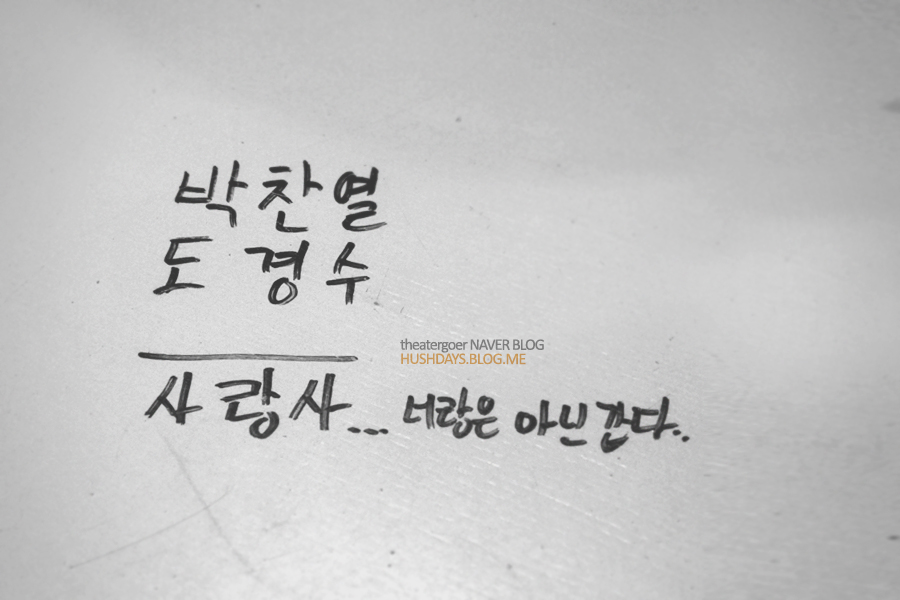 박찬열
도경수
theatergoer NAVER BLOG
HUSHDAYS.BLOG.ME
사랑사... 너랑은 아닌갑다..